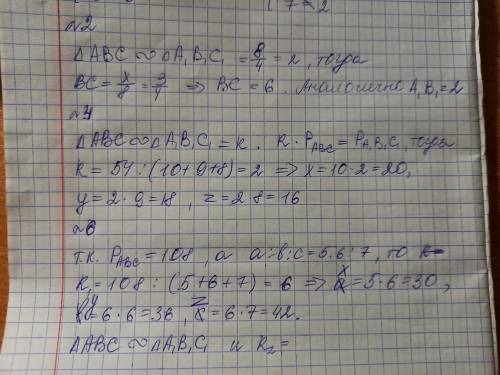 { 7 = 2
№2
△ABC ∾ △A₁B₁C₁ = 8/4 = 2, тогда
BC = x/8 = 3/4 ⇒ BC = 6. Аналогично A₁B₁ = 2
№4
△ABC ∾ △A₁B₁C₁ = k. k · P_ABC = P_A₁B₁C₁, тогда
k = 54 : (10+9+8) = 2 ⇒ x = 10·2 = 20,
y = 2·9 = 18, z = 2·8 = 16
№6
т.к. P_ABC = 108, а a:b:c = 5:6:7, то
k₁ = 108 : (5+6+7) = 6 ⇒ x = 5·6 = 30,
y = 6·6 = 36, z = 6·7 = 42.
△ABC ∾ △A₁B₁C₁ и k₂ =